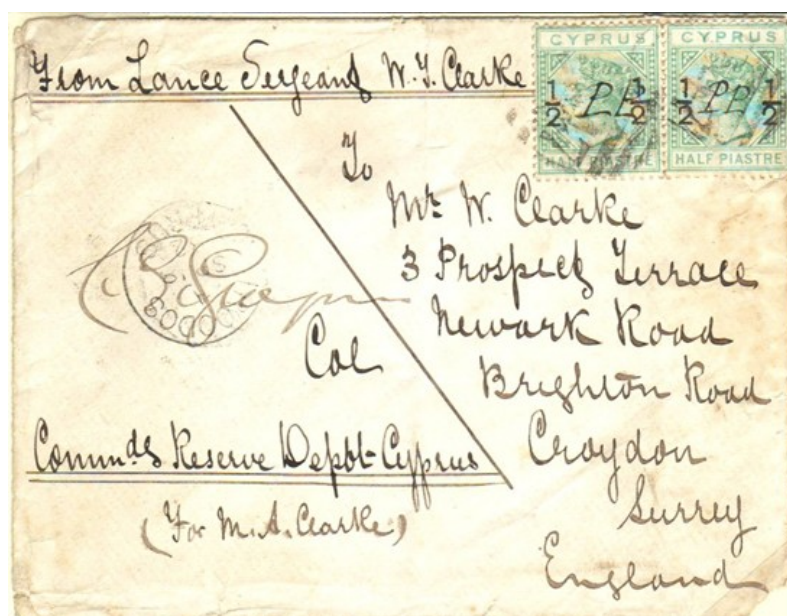 From Lance Sergeant W. J. Clarke
CYPRUS CYPRUS
½ ½ ½ ½
HALF PIASTRE HALF PIASTRE
To
Mr. W. Clarke
3 Prospect Terrace
Newark Road
Brighton Road
Croydon
Surrey
England
Col
Commdg Reserve Depôt-Cyprus
(For M. A. Clarke)